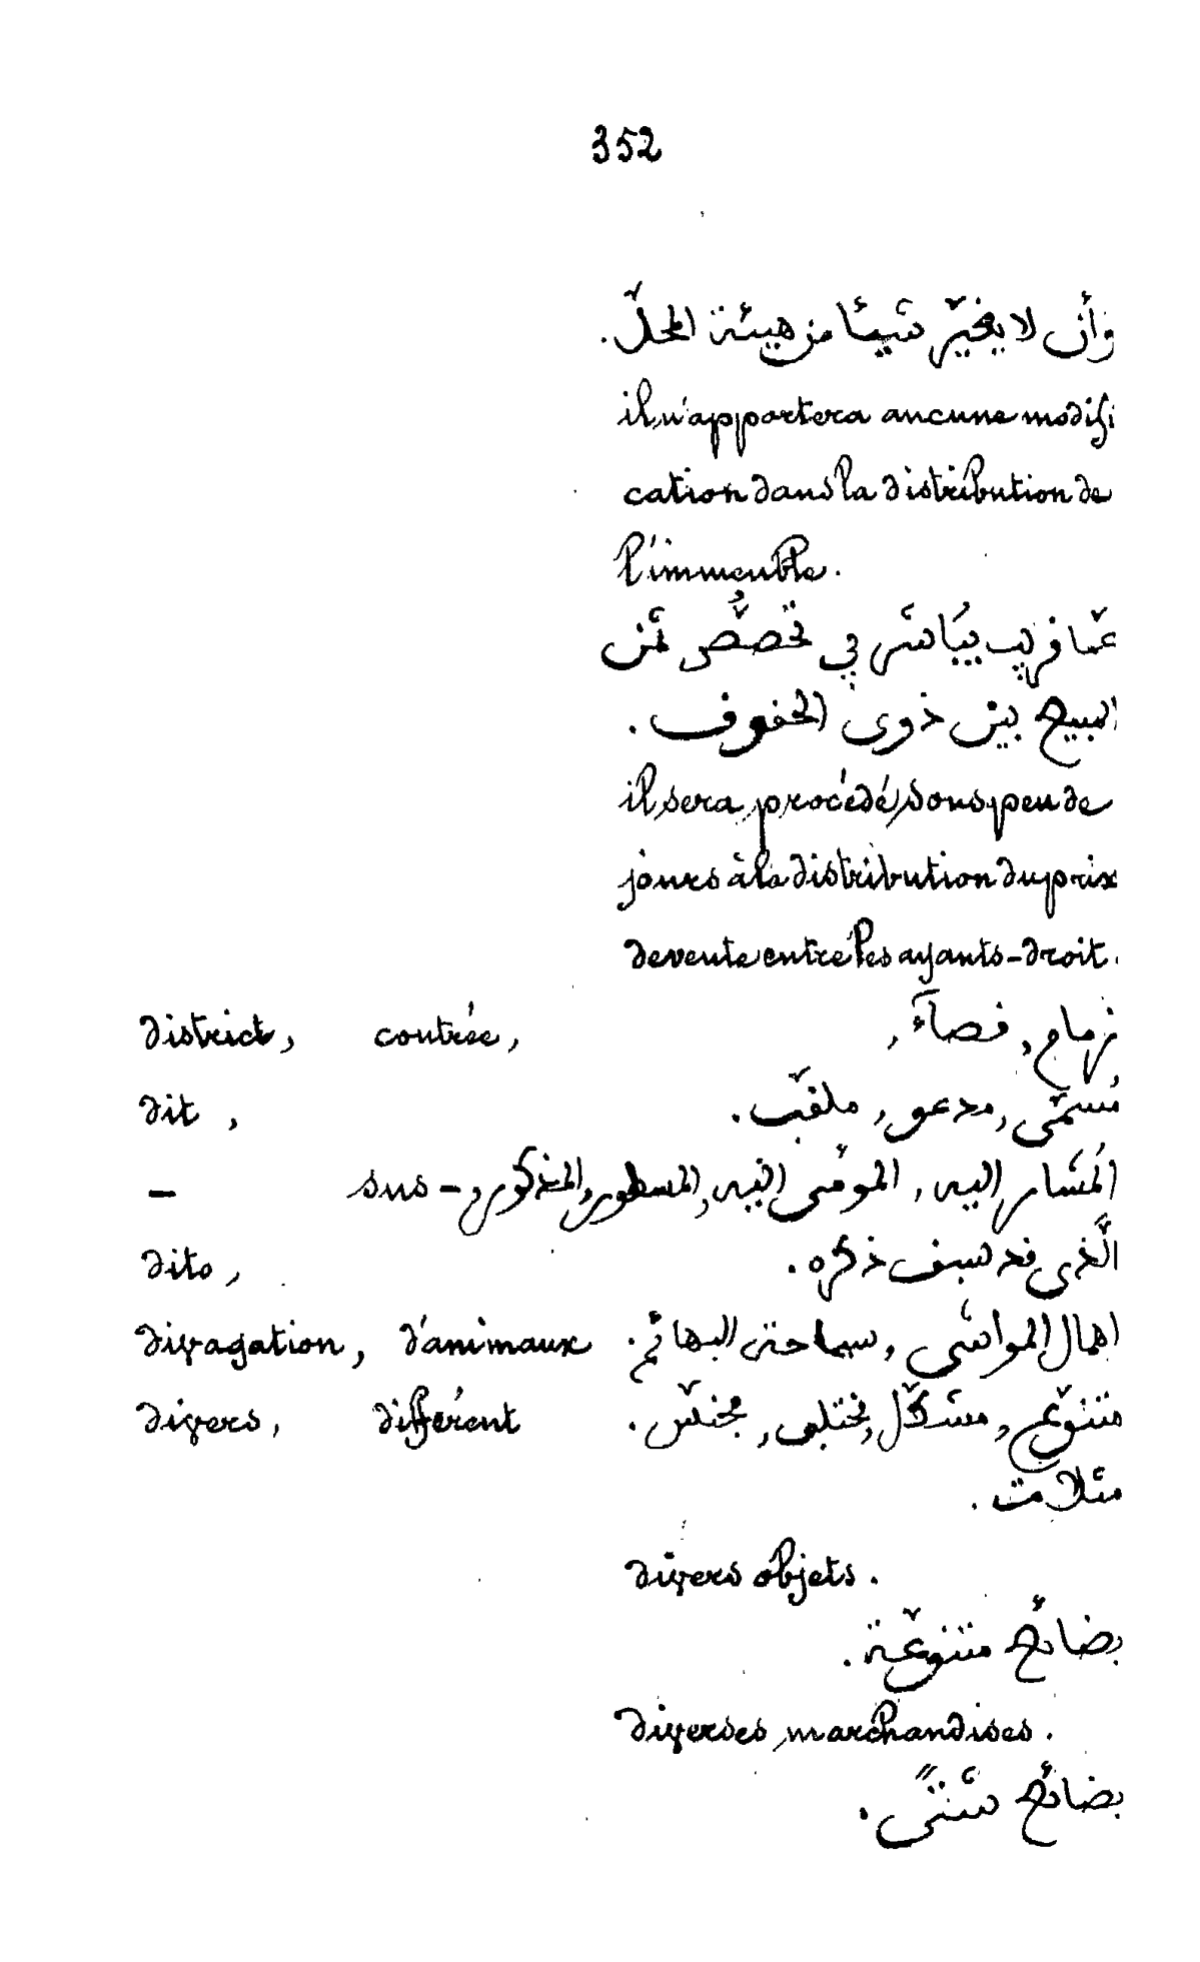 352
وأن لا يغيّر شيئا من هيئة المحلّ.
il n'apportera aucune modifi
cation dans la distribution de
l'immeuble.
عمّا قريب يُباشَر في تخصّص ثمن
المبيع بين ذوى الحقوق.
il sera procédé sous peu de
jours à la distribution du prix
de vente entre les ayants-droit.
district, contrée, زمام, فصآء,
dit, مُسمّى, مدعو, ملقّب.
— sus- المُشار اليه, المومٰى اليه, المسطور, المذكور,
dito, الّذى قد سبق ذكره.
divagation, d'animaux اهمال المواشى, سياحة البهائم.
divers, différent متنوّع, مشكّل, مختلف, مجنّس.
مثلامت.
divers objets.
بضائع متنوّعة.
diverses marchandises.
بضائع شتّىً.